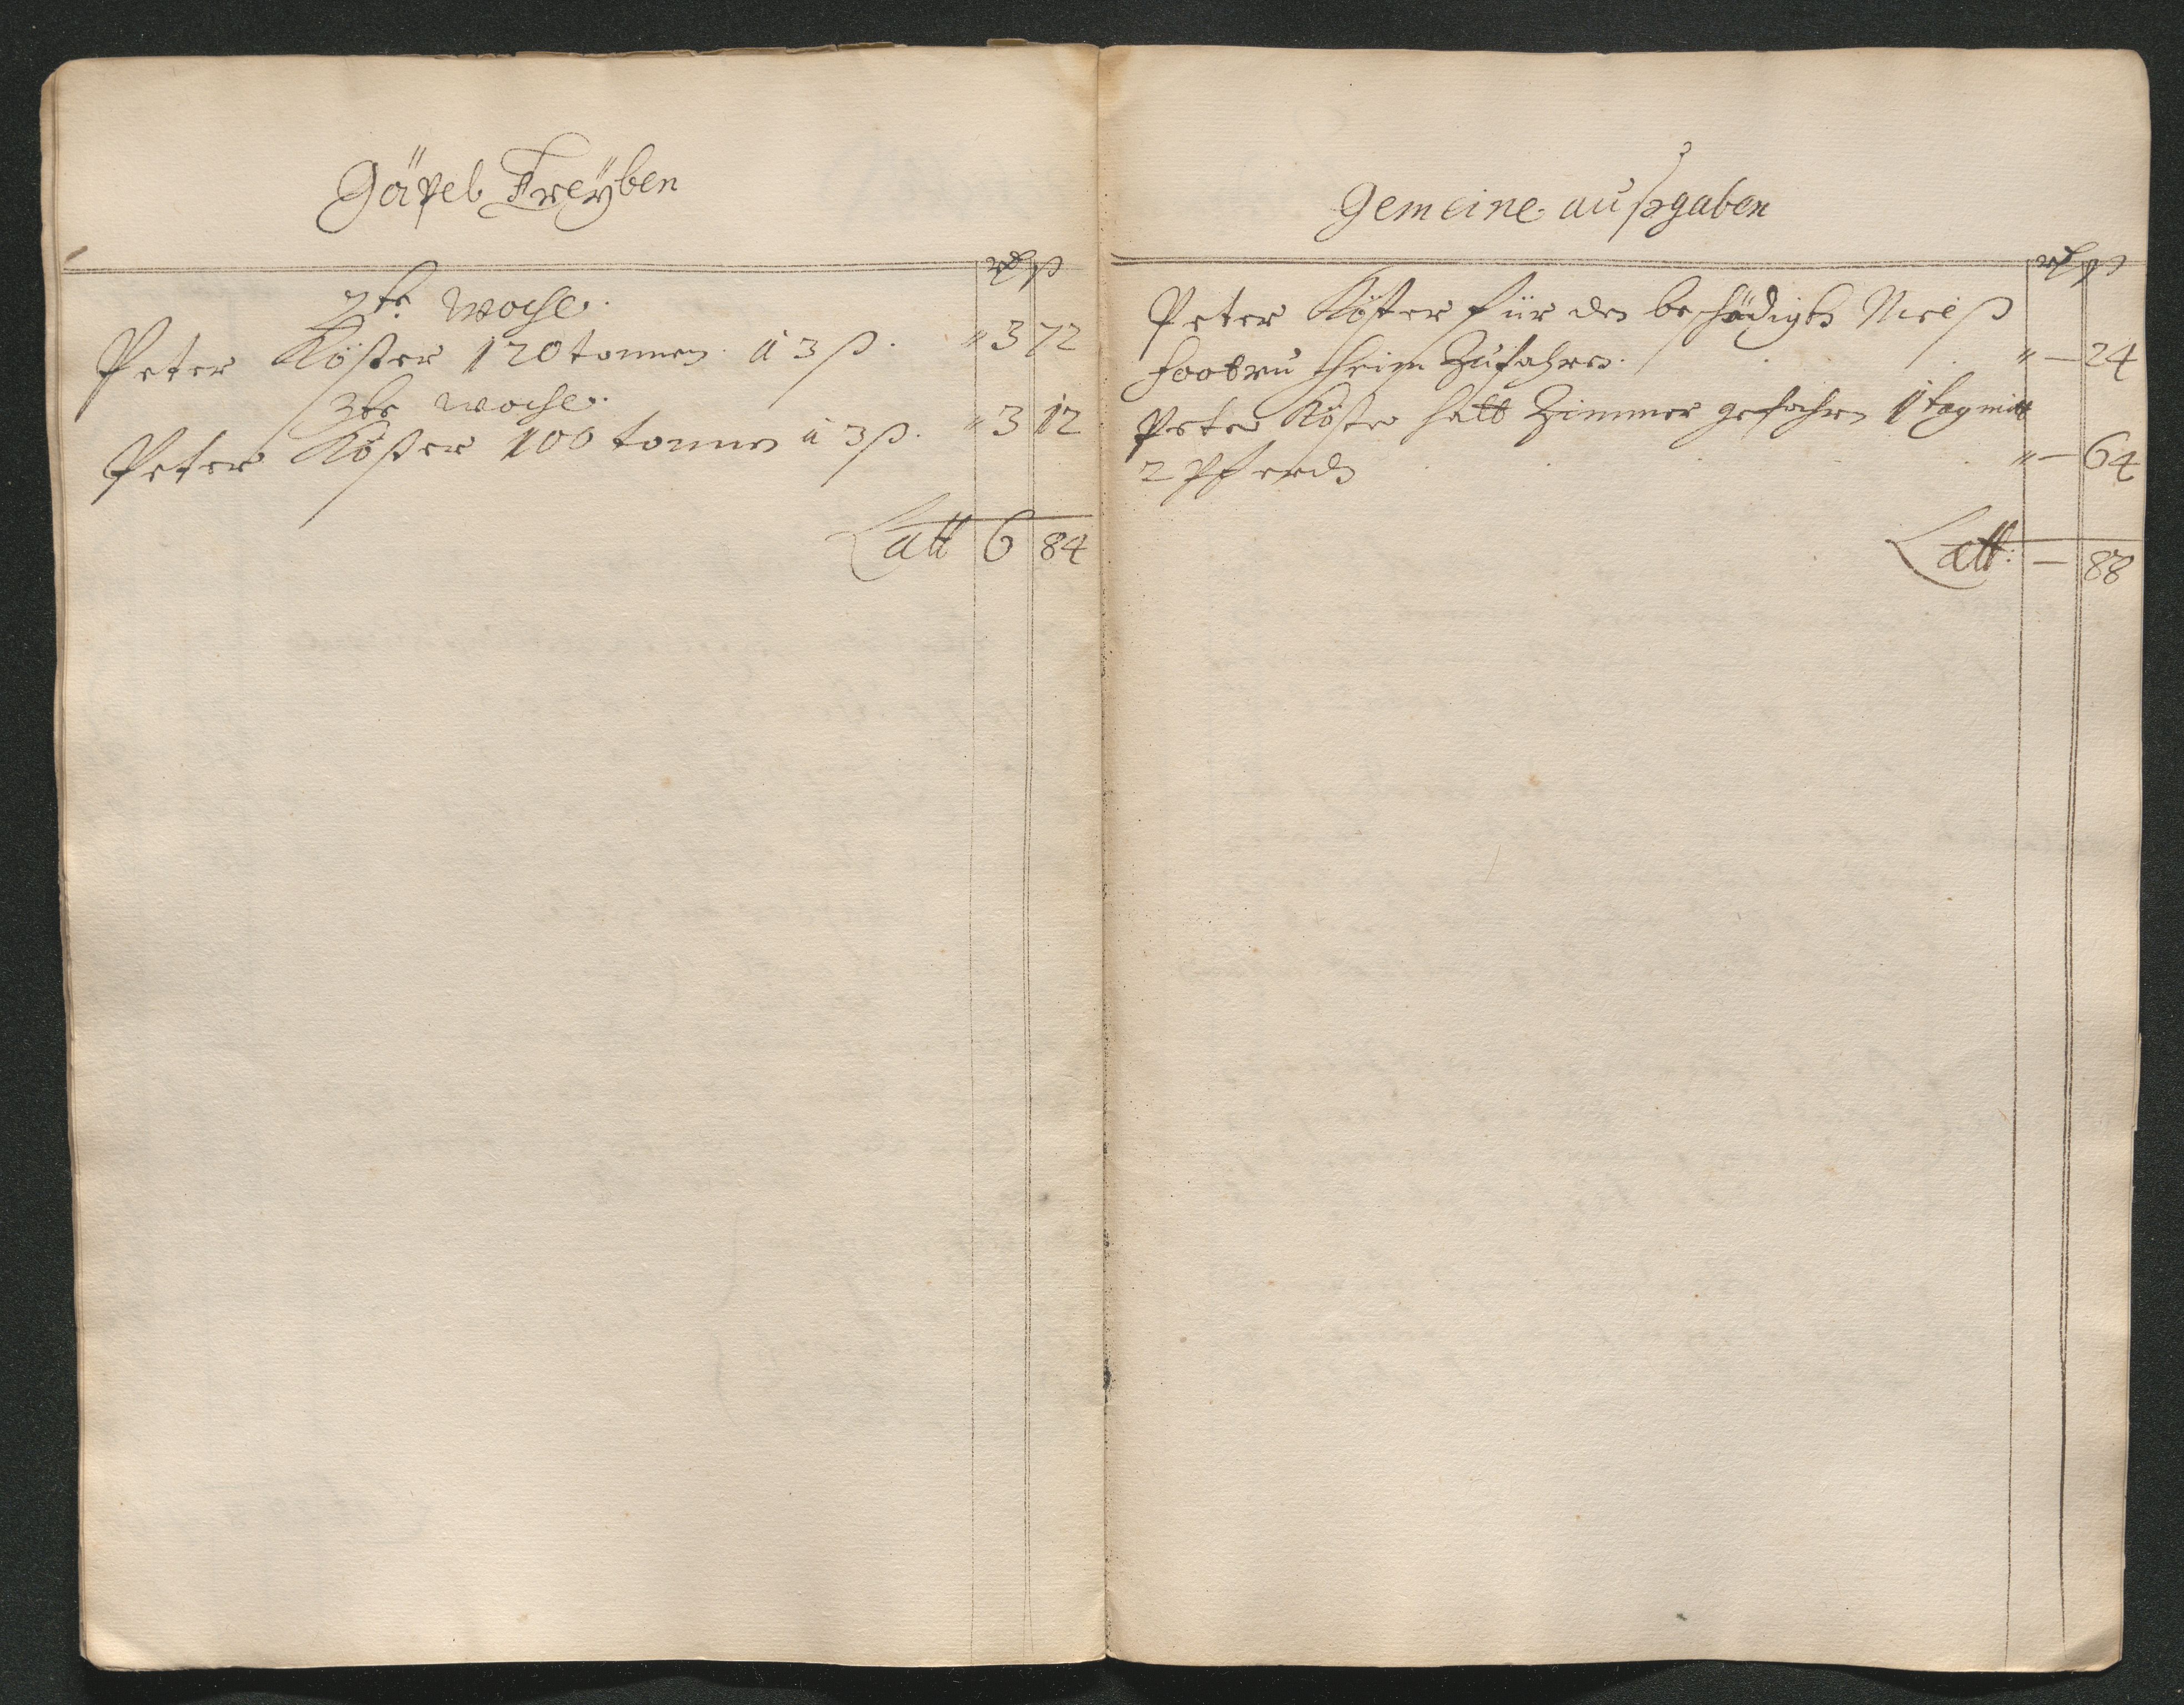 Göpel Treÿben
rd ß
2te woche.
Peter Köster 120 tonnen á 3 ß. " 3 72
3te woche.
Peter Köster 100 tonnen á 3 ß. " 3 12
Latt 6 84
Gemeine außgaben
rd ß
Peter Köster für den beschädigten Nielß
heim Zufahren. " — 24
Peter Köster hatt Zimmer gefahren 1 tag mitt
2 Pferden " — 64
Latt: — 88